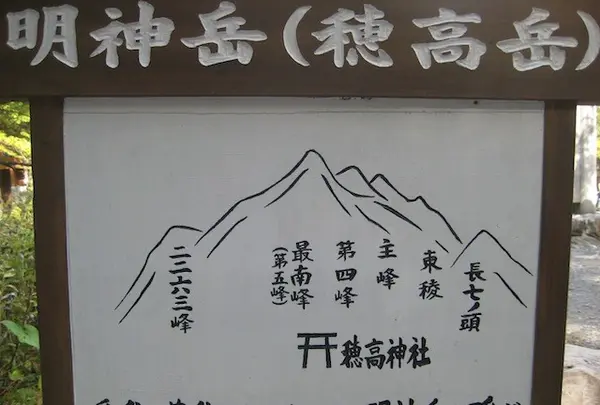 明神岳(穂高岳)
二二六三峰
最南峰
(第五峰)
第四峰
主峰
東稜
長七ノ頭
穂高神社